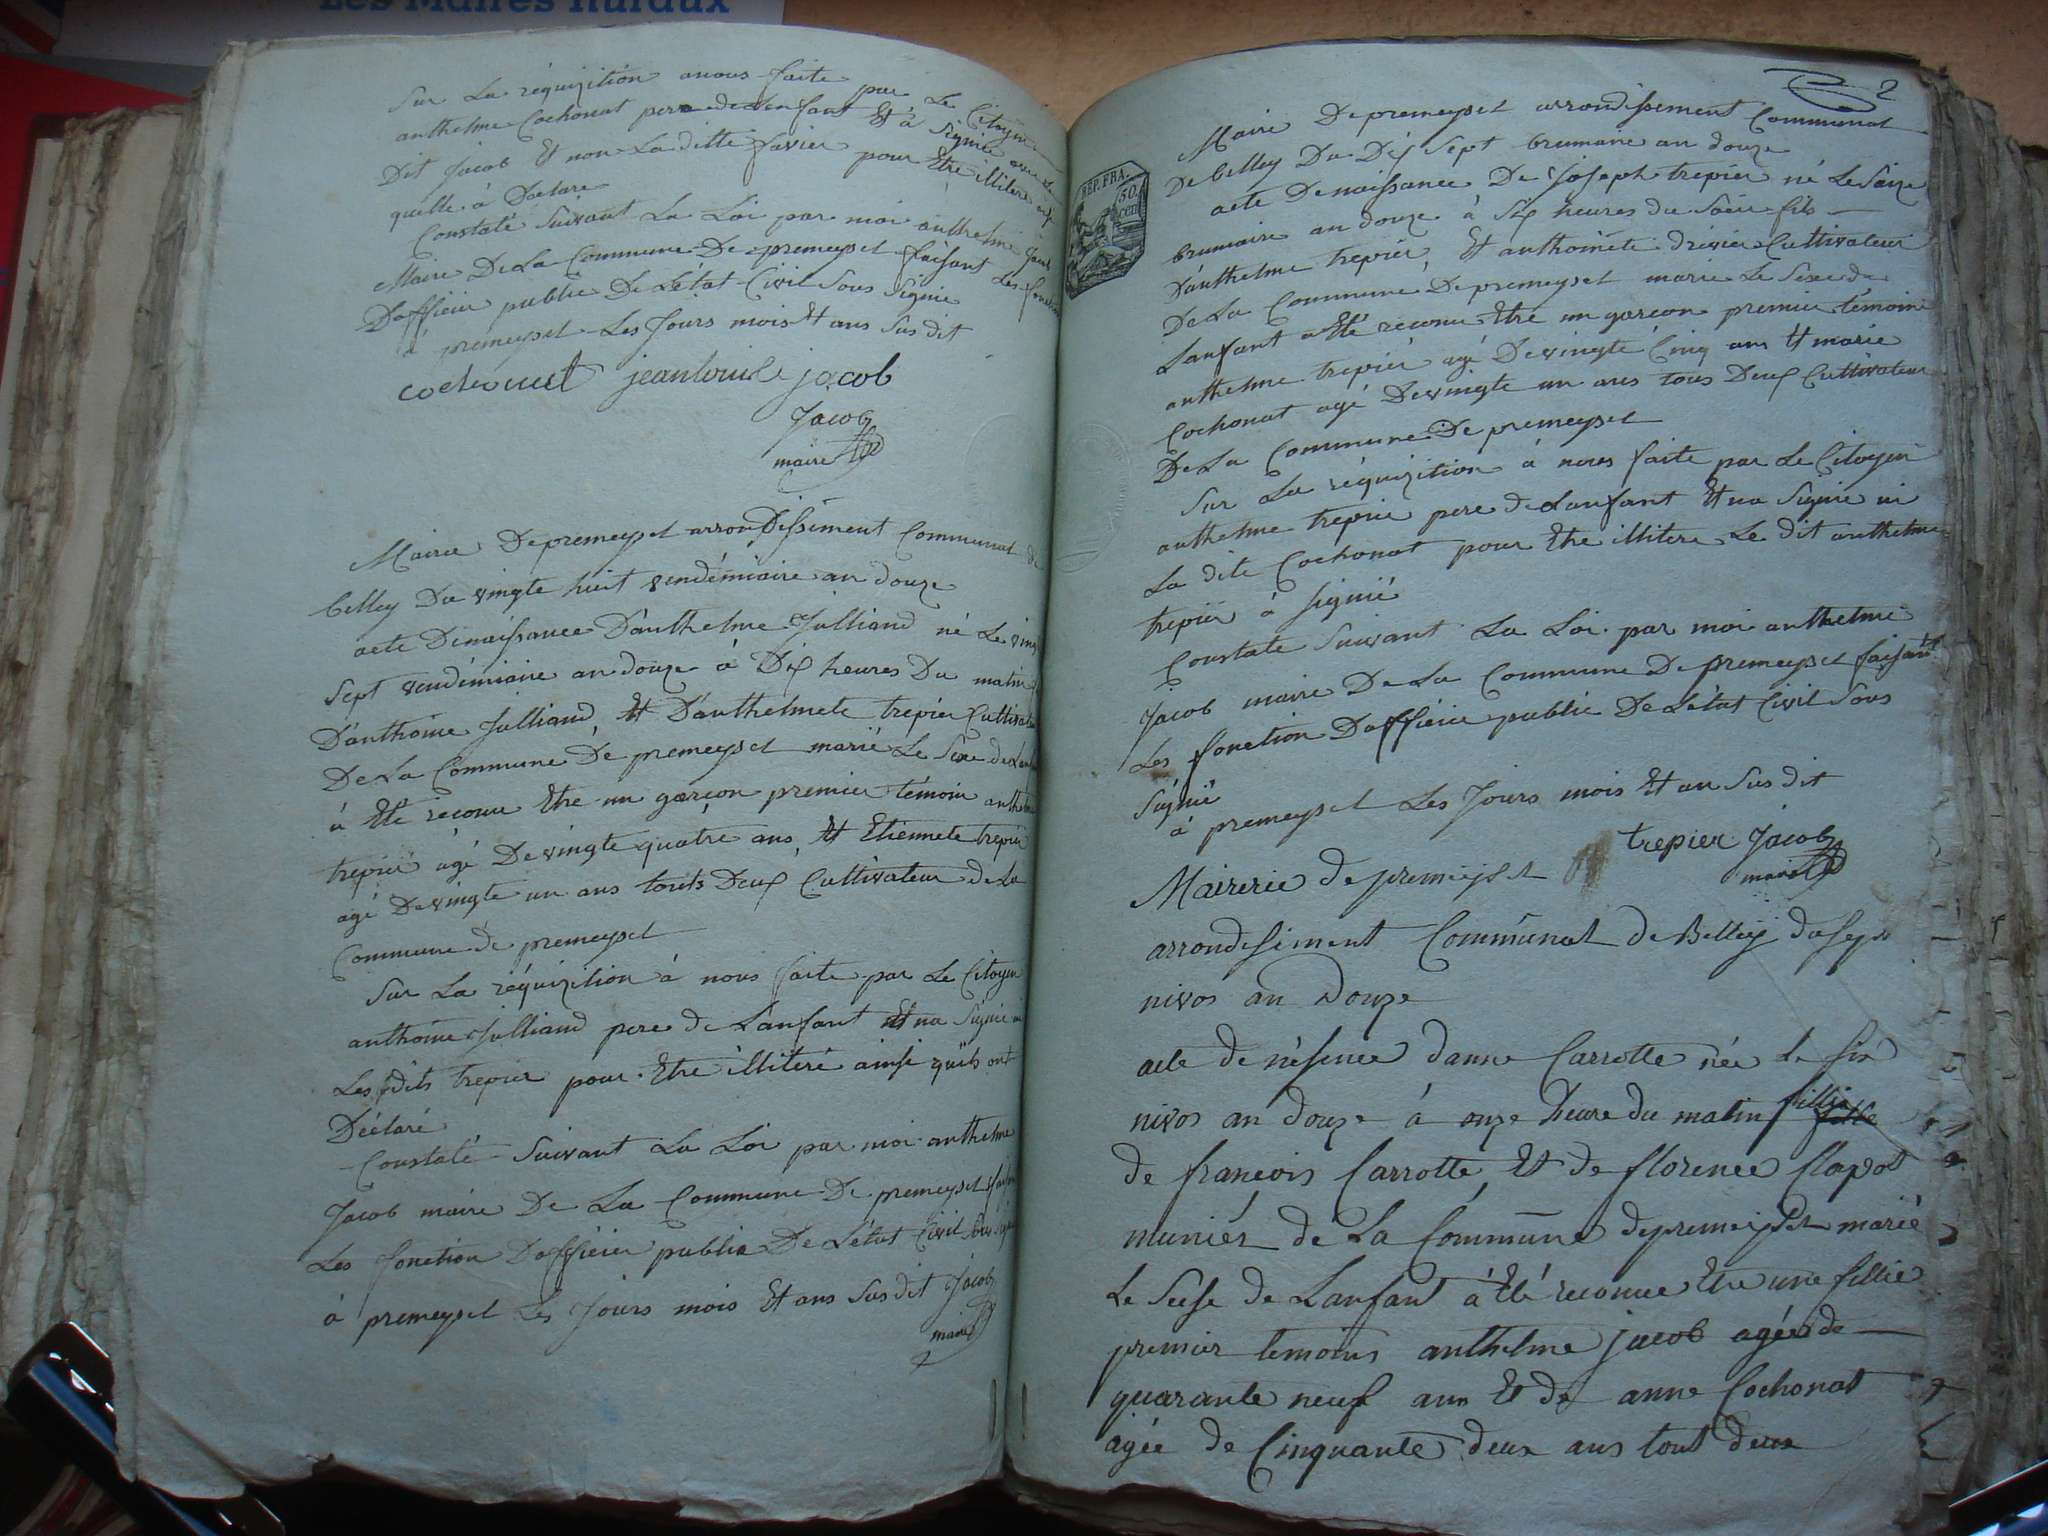 Les Maires Ruraux
Sur La requizition anous faite par Le Citoyen
anthelme Cochonat pere delenfant Et à Signié avec Le
Dit Jacob Et non La ditte favier pour Etre illitere
quelle à Declare
Constaté Suivant La Loi par moi anthelme Jacob
Maire De La Commune De premeysel faisant Les fonction
Dofficier public De Letat Civil Sous Signié
à premeysel Les Jours mois Et ans Sus dit
cochonat jeanlouis jacob
Jacob
maire
Mairie Depremeysel arrondissement Communal de
belley Du vingte huit vendémiaire an douze
acte Denaissance Danthelme Julliand né Le vingt
Sept vendémiaire an douze à Dix heures Du matin
Danthoine Julliand Et Danthelmete trepier Cultivateur
De La Commune De premeysel marié Le Sexe de Lanfant
à Eté reconu Etre un garcon premier témoin anthelme
trepier agé Devingte quatre ans Et Etiennete trepier
agé Devingte un ans touts Deux Cultivateur de La
Commune de premeysel
Sur La réquizition à nous faite par Le Citoyen
anthoine Julliand pere de Lanfant Et na Signié ni
Les dits trepier pour Etre illiteré ainsi quils ont
Déclaré
Constaté Suivant La Loi par moi anthelme
Jacob maire De La Commune De premeysel faisant
Les fonction Dofficier public De Létat Civil Sous Signié
à premeysel Les Jours mois Et ans Sus dit Jacob
maire
2
Maire Depremeysel arrondissement Communal
De belley Du Dix Sept brumaire an douze
REP. FRA.
50
cen
acte Denaissance De Joseph trepier né Le Saize
brumaire an douze à Six heures du Soir fils
Danthelme trepier Et anthoinete drivier Cultivateur
De La Commune Depremeysel marie Le Sexe de
Lanfant a Eté reconu Etre un garcon premier témoin
anthelme trepier agé Devingte Cinq ans Et marie
Cochonat agé Devingte un ans tous Deux Cultivateur
De La Commune De premeysel
Sur La réquizition à nous faite par Le Citoyen
anthelme trepier pere de Lanfant Et na Signié ni
La dite Cochonat pour Etre illitere Le dit anthelme
trepier à signié
Constate Suivant La Loi par moi anthelme
Jacob maire De La Commune De premeysel faisant
Les fonction Dofficier public De Létat Civil Sous
Signié
à premeysel Les Jours mois Et an Sus dit
trepier Jacob
maire
Mairerie de premeysel
arrondisiment Communal de Belley du sept
nivos an Douze
acte de nésence danne Carrotte née le six
nivos an douze à onze heure du matin fillie
fille
de francois Carrotte Et de florence Clapot
muniér de La Commune depremeysel marié
Le Sexse de Lanfant à Eté reconue Etre une fillie
premier temoins anthelme jacob agée de
quarante neuf ann Et de anne Cochonat
agée de Cinquante deux ans tout deux